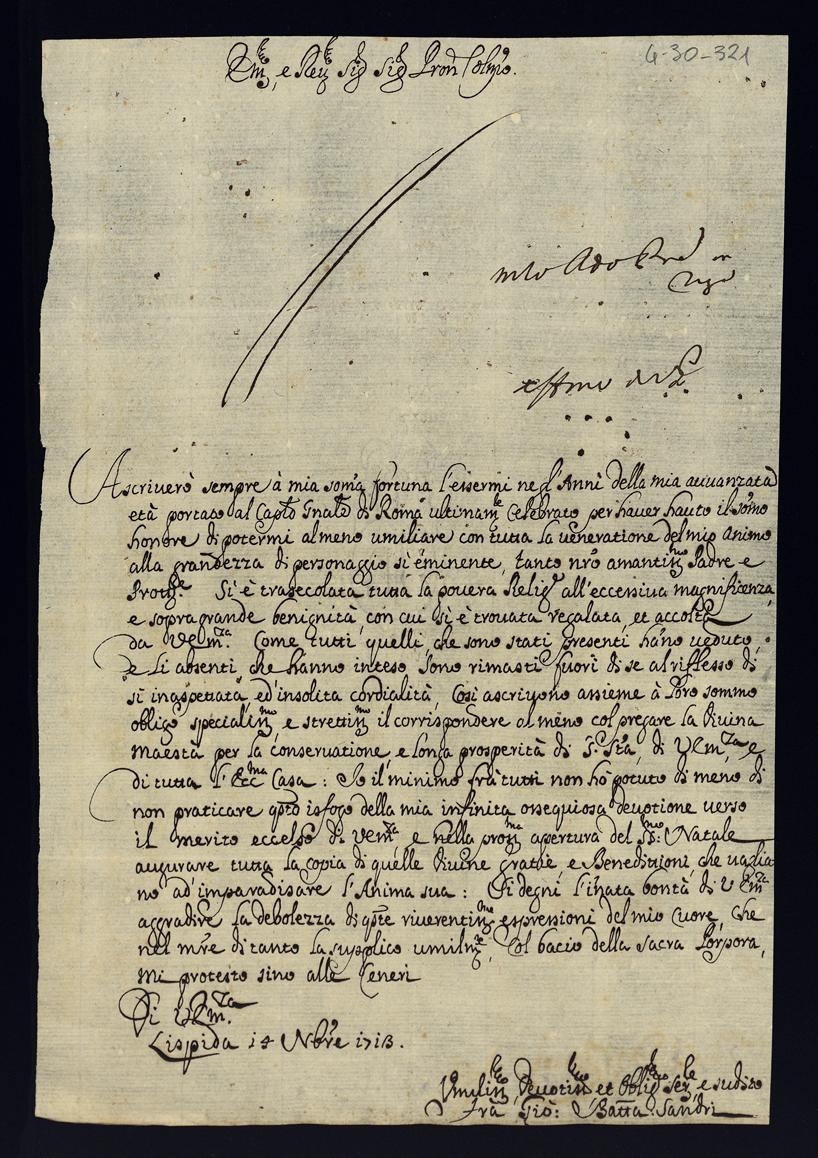 Em.mo, e Reu.mo Sig.r Sig.r Pron Colmo.
4-30-321
Ascriuerò sempre à mia som̃a fortuna l'essermi negl'Anni della mia auuanzata
età portato al Cap.to Gnāle di Roma ultimam.te Celebrato per hauer hauto il som̃o
honore di potermi almeno umiliare con tutta la ueneratione del mio Animo
alla grandezza di personaggio si eminente, tanto nr̃o amantiss.mo Padre e
Prott.re Si è trasecolata tutta la pouera Relig.e all'eccessiua magnificenza,
e sopragrande benignità, con cui si è trouata regalata, et accolta
da VEm.za. Come tutti quelli, che sono stati presenti hanno ueduto,
e li absenti, che hanno inteso sono rimasti fuori di se al riflesso di
si inaspettata ed'insolita cordialità, Cosi ascriuono assieme à loro sommo
obligo specialiss.mo, e strettiss.mo il corrispondere almeno col pregare la diuina
Maestà per la conseruatione, e longa prosperità di S. Stà, di VEm.za e
di tutta l'Ecc.ma Casa: Io il minimo frà tutti non hò potuto di meno di
non praticare q̃sto isfogo della mia infinita ossequiosa deuotione uerso
il merito eccelso di VEm.za, e nella pross.ma apertura del S.mo Natale
augurare tutta la copia di quelle Diuine gratie, e Beneditioni, che uaglia
no ad'imparadisare l'Anima sua: Si degni l'iñata bontà di VEm.za
aggradire la debolezza di q̃ste riuerentiss.me espressioni del mio Cuore, che
nel mr̃e di tanto la supplico umilm.te, Col bacio della Sacra Porpora,
mi protesto sino alle Ceneri
Di VEm.za
Lispida 14 Nbr̃e 1713.
Vmiliss.mo Deuotiss.mo et Oblig.mo Ser.re, e sudito
Frà Giõ: Batta Sandri